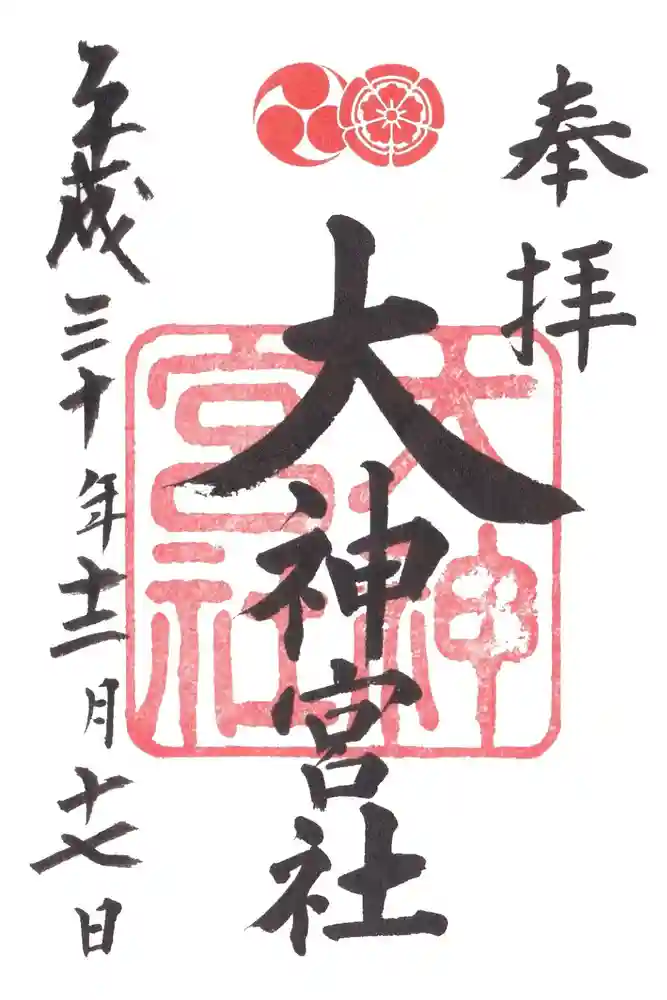 奉拝
大神宮社
大神宮社
平成三十年十二月十七日